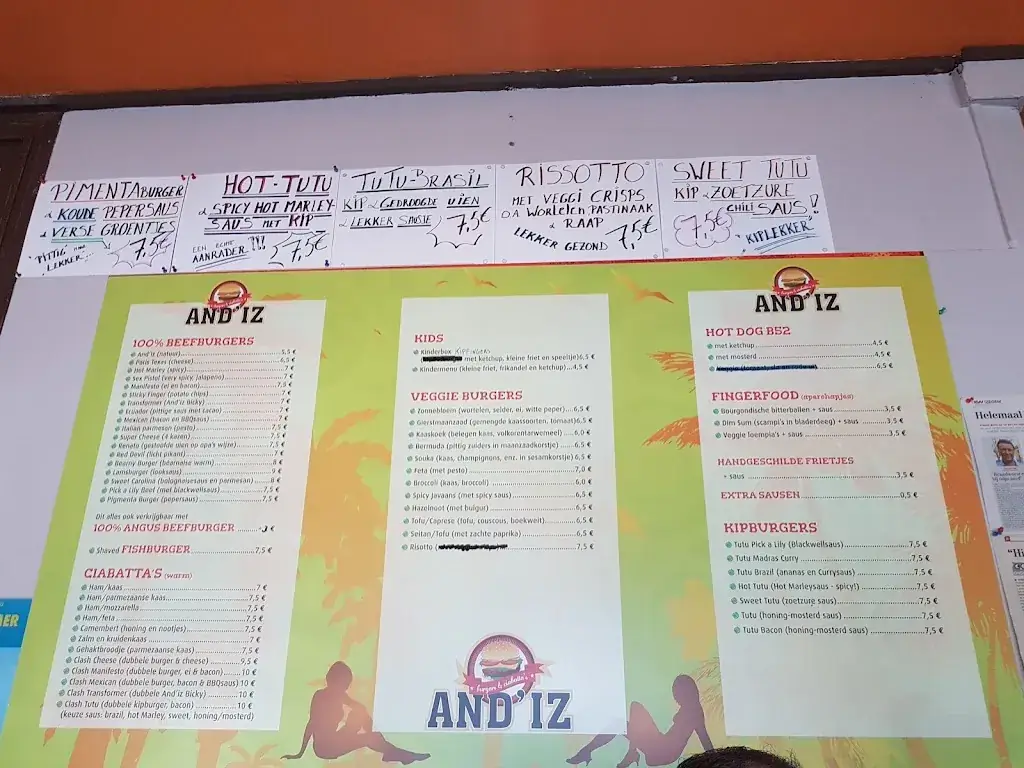 PIMENTABURGER
& KOUDE PEPERSAUS
& VERSE GROENTJES
"PITTIG" MAAR LEKKER!
7,5€
HOT-TUTU
& SPICY HOT MARLEY-
SAUS MET KIP
EEN ECHTE
AANRADER!!!
7,5€
TUTU-BRASIL
KIP & GEDROOGDE UIEN
& LEKKER SAUSJE
7,5€
RISSOTTO
MET VEGGI CRISPS
O.A WORLELEN PASTINAAK
& RAAP
LEKKER GEZOND 7,5€
SWEET TUTU
KIP & ZOETZURE
CHILI SAUS!
7,5€
"KIPLEKKER"
burgers & ciabatta's
AND'IZ
100% BEEFBURGERS
And'iz (natuur) 5,5 €
Paris Texas (cheese) 6,5 €
Hot Marley (spicy) 7 €
Sex Pistol (very spicy, jalapeno) 7 €
Manifesto (ei en bacon) 7,5 €
Sticky Finger (potato chips) 7 €
Transformer (And'iz Bicky) 7 €
Ecuador (pittige saus met cacao) 7 €
Mexican (bacon en BBQsaus) 7 €
Italian parmesan (pesto) 7,5 €
Super Cheese (4 kazen) 7,5 €
Renato (gestoofde uien op opa's wijze) 7,5 €
Red Devil (licht pikant) 7 €
Bearny Burger (béarnaise warm) 8 €
Lamsburger (looksaus) 9 €
Sweet Carolina (bolognaisesaus en parmesan) 8 €
Pick a Lily Beef (met blackwellsaus) 7,5 €
Pigmenta Burger (pepersaus) 7,5 €
Dit alles ook verkrijgbaar met
100% ANGUS BEEFBURGER
Shaved FISHBURGER 7,5 €
CIABATTA'S (warm)
Ham/kaas 7 €
Ham/parmezaanse kaas 7,5 €
Ham/mozzarella 7,5 €
Ham/feta 7,5 €
Camembert (honing en nootjes) 7,5 €
Zalm en kruidenkaas 7 €
Gehaktbroodje (parmezaanse kaas) 7,5 €
Clash Cheese (dubbele burger & cheese) 9,5 €
Clash Manifesto (dubbele burger, ei & bacon) 10 €
Clash Mexican (dubbele burger, bacon & BBQsaus) 10 €
Clash Transformer (dubbele And'iz Bicky) 10 €
Clash Tutu (dubbele kipburger, bacon) 10 €
(keuze saus: brazil, hot Marley, sweet, honing/mosterd)
KIDS
Kinderbox KIPFINGERS
met ketchup, kleine friet en speeltje) 6,5 €
Kindermenu (kleine friet, frikandel en ketchup) 4,5 €
VEGGIE BURGERS
Zonnebloem (wortelen, selder, ei, witte peper) 6,5 €
Gierstmaanzaad (gemengde kaassoorten, tomaat) 6,5 €
Kaaskoek (belegen kaas, volkorentarwemeel) 6,0 €
Bermuda (pittig zuiders in maanzaadkorstje) 6,5 €
Souka (kaas, champignons, enz. in sesamkorstje) 6,5 €
Feta (met pesto) 7,0 €
Broccoli (kaas, broccoli) 6,0 €
Spicy Javaans (met spicy saus) 6,5 €
Hazelnoot (met bulgur) 6,5 €
Tofu/Caprese (tufu, couscous, boekweit) 6,5 €
Seitan/Tofu (met zachte paprika) 6,5 €
Risotto ( 7,5 €
burgers & ciabatta's
AND'IZ
burgers & ciabatta's
AND'IZ
HOT DOG B52
met ketchup 4,5 €
met mosterd 4,5 €
6,5 €
FINGERFOOD (aperohapjes)
Bourgondische bitterballen + saus 3,5 €
Dim Sum (scampi's in bladerdeeg) + saus 3,5 €
Veggie loempia's + saus 3,5 €
HANDGESCHILDE FRIETJES
+ saus 3,5 €
EXTRA SAUSEN 0,5 €
KIPBURGERS
Tutu Pick a Lily (Blackwellsaus) 7,5 €
Tutu Madras Curry 7,5 €
Tutu Brazil (ananas en Currysaus) 7,5 €
Hot Tutu (Hot Marleysaus - spicy!) 7,5 €
Sweet Tutu (zoetzure saus) 7,5 €
Tutu (honing-mosterd saus) 7,5 €
Tutu Bacon (honing-mosterd saus) 7,5 €
Helemaal
"Hi